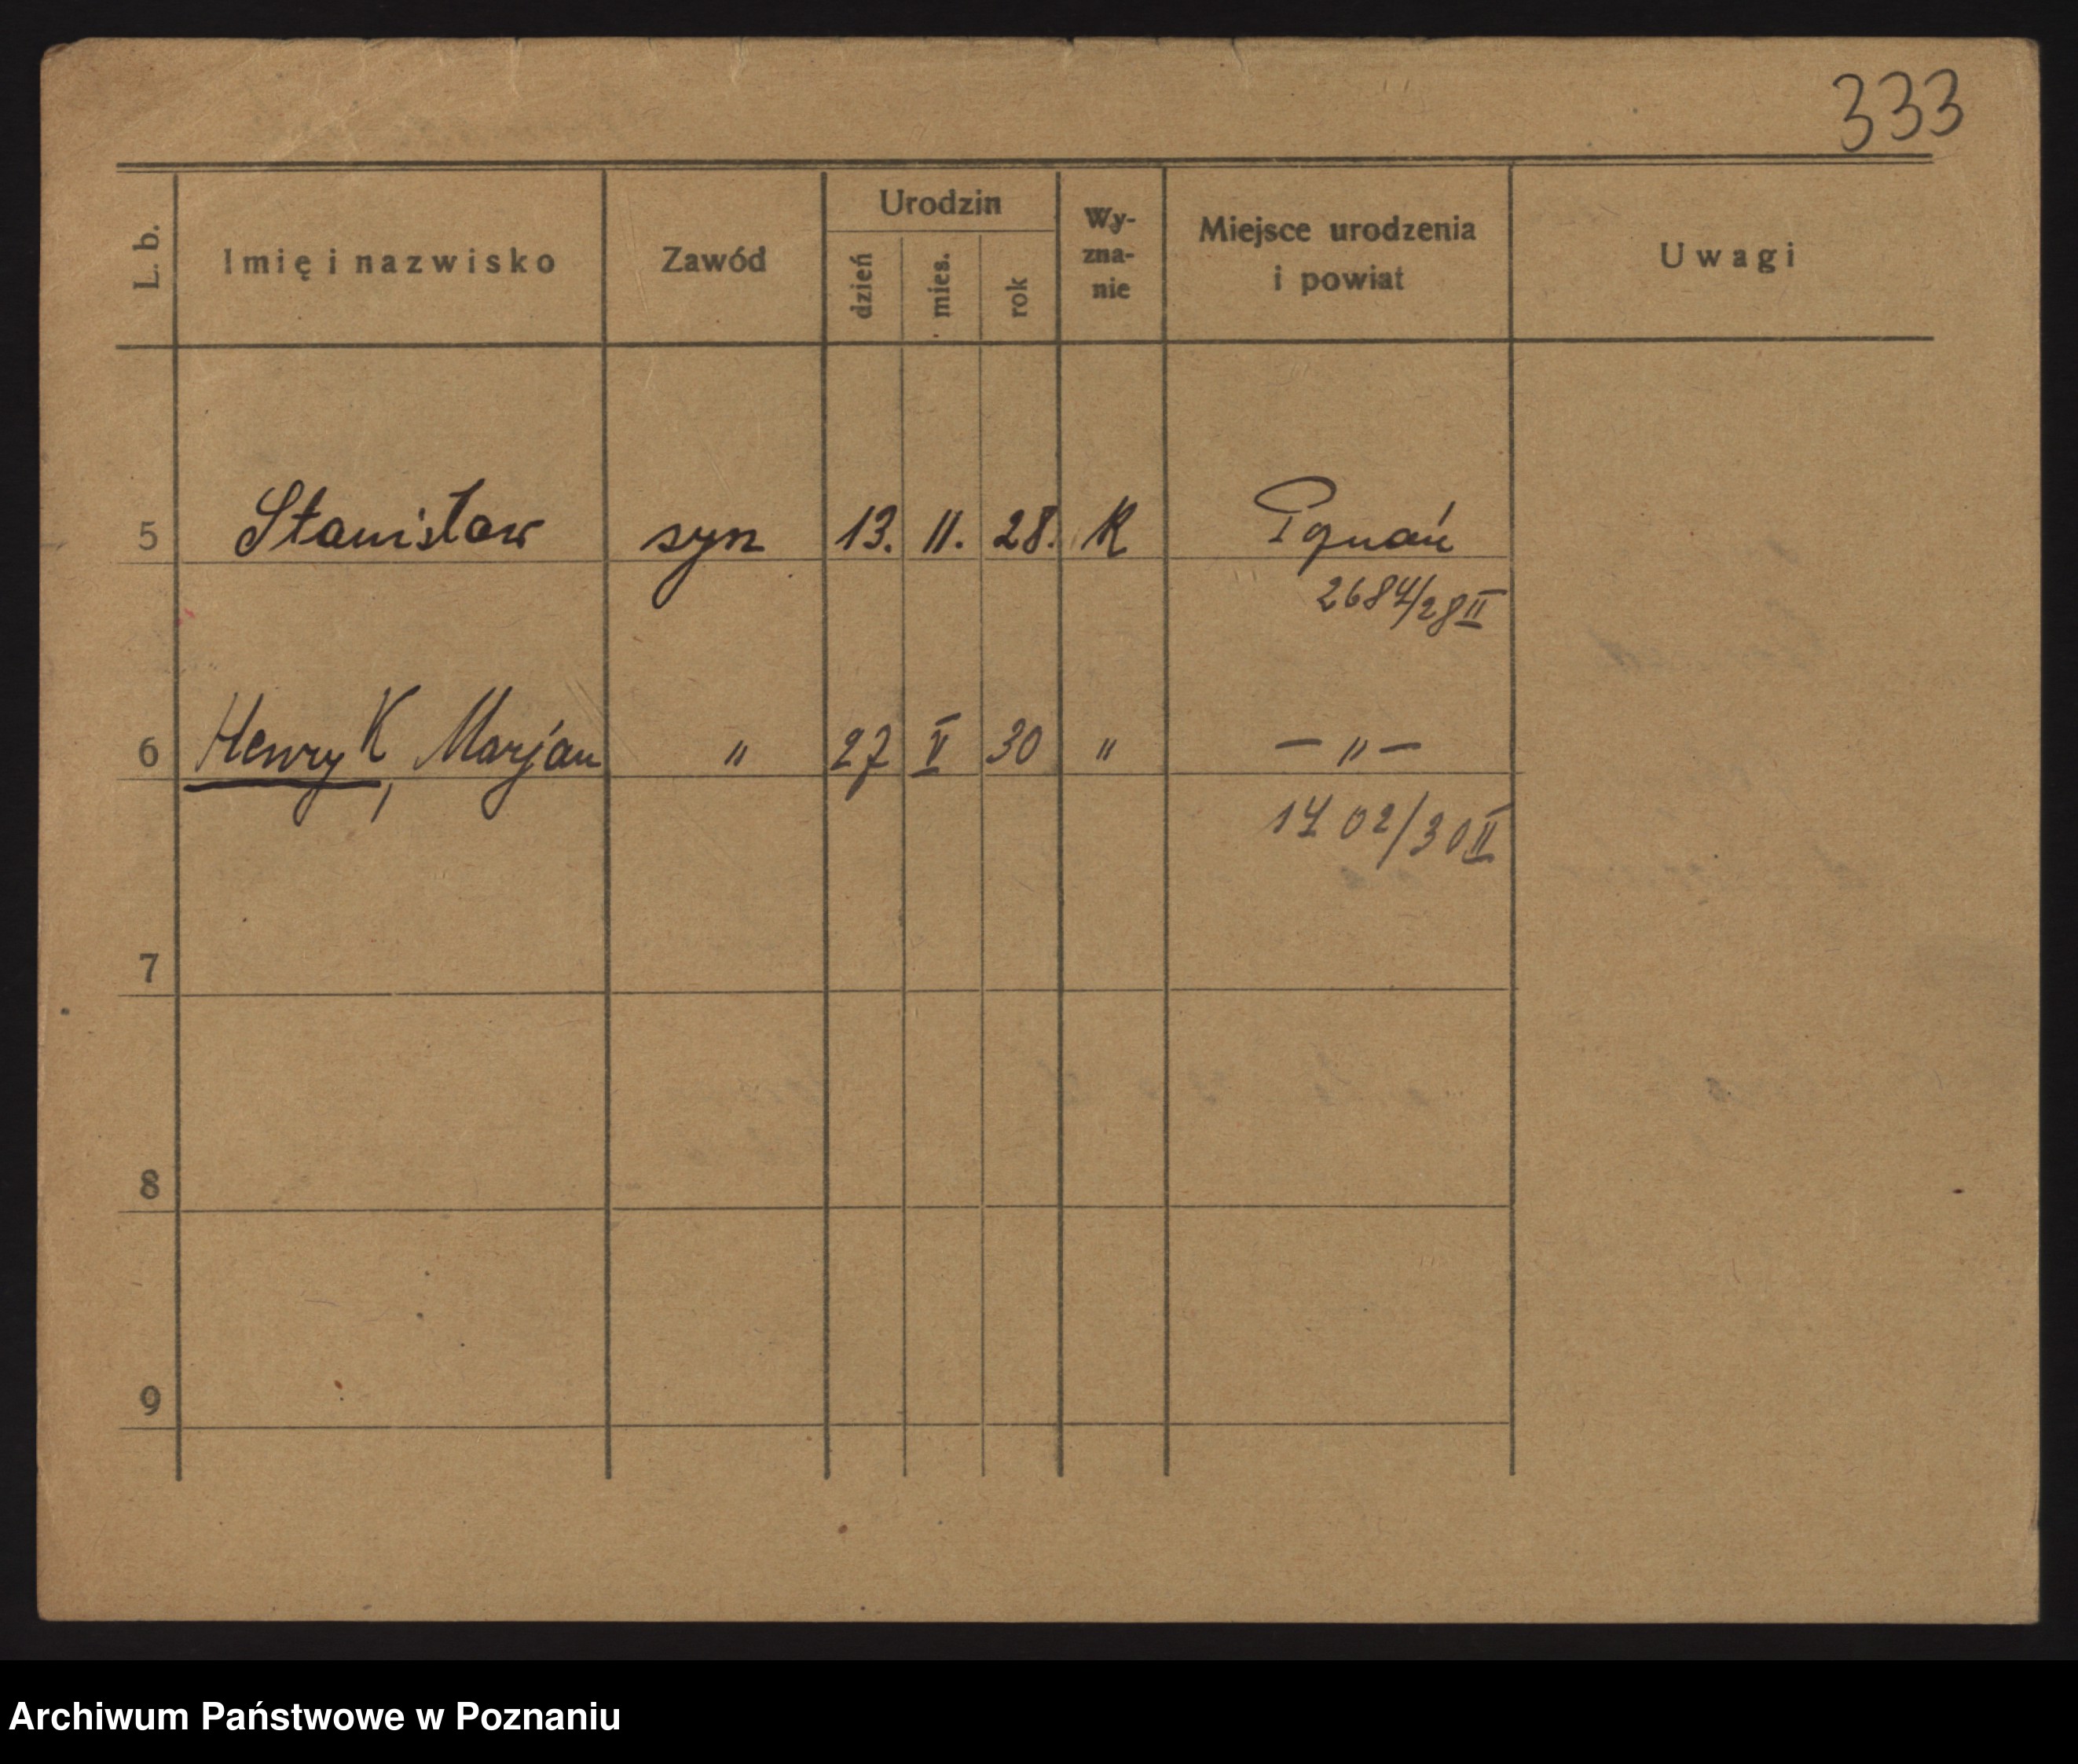 333
L. b. Imię i nazwisko Zawód Urodzin dzień mies. rok Wy-zna-nie Miejsce urodzenia i powiat Uwagi
5 Stanisław syn 13. II. 28. K Poznań
2684/28 II
6 Henryk, Marjan " 27 V 30 " — " —
1402/30 II
7
8
9
Archiwum Państwowe w Poznaniu